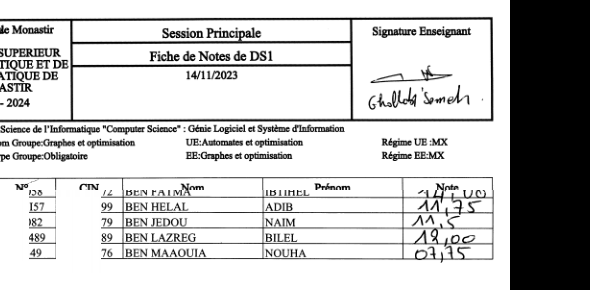 de Monastir
Session Principale
Signature Enseignant
SUPERIEUR
TIQUE ET DE
ATIQUE DE
ASTIR
- 2024
Fiche de Notes de DS1
14/11/2023
Ghollabi Semeh
Science de l'Informatique "Computer Science" : Génie Logiciel et Système d'Information
om Groupe:Graphes et optimisation UE:Automates et optimisation Régime UE :MX
pe Groupe:Obligatoire EE:Graphes et optimisation Régime EE:MX
N° CIN Nom Prénom Note
BEN FATMA IBTIHEL 14,00
157 99 BEN HELAL ADIB 11,75
082 79 BEN JEDOU NAIM 11,5
489 89 BEN LAZREG BILEL 12,00
49 76 BEN MAAOUIA NOUHA 07,75